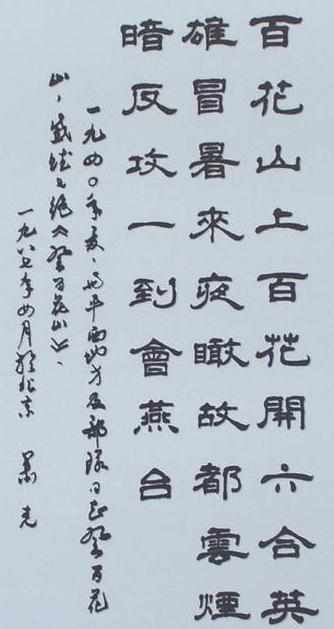 百花山上百花開六合英
雄冒暑來夜瞰故都雲煙
暗反攻一到會燕台
一九四〇年夏、与平西地方及部隊同志登百花
山、感賦七绝《登百花山》、
一九八七年四月於北京 萧克